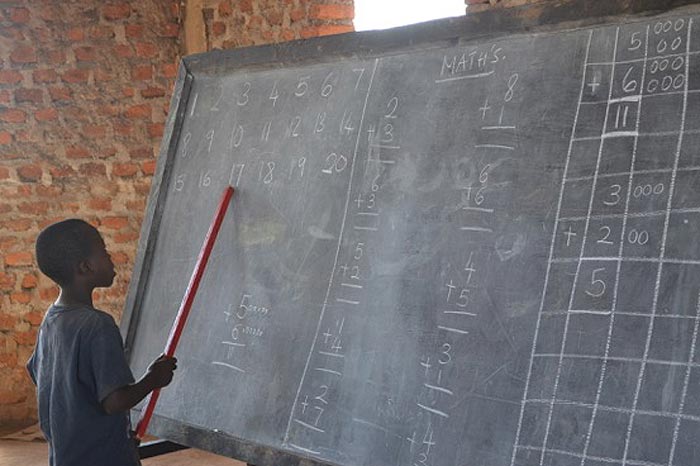 1 2 3 4 5 6 7
8 9 10 11 12 13 14
5 16 17 18 19 20
5
+ 6
11
2
+ 3
6
+ 3
5
+ 2
1
+ 4
2
+ 7
MATH'S
8
+ 1
6
+ 6
4
+ 5
3
+ 1
4
+ 4
5 000
+ 6 000000
11
3 000
+ 2 00
5